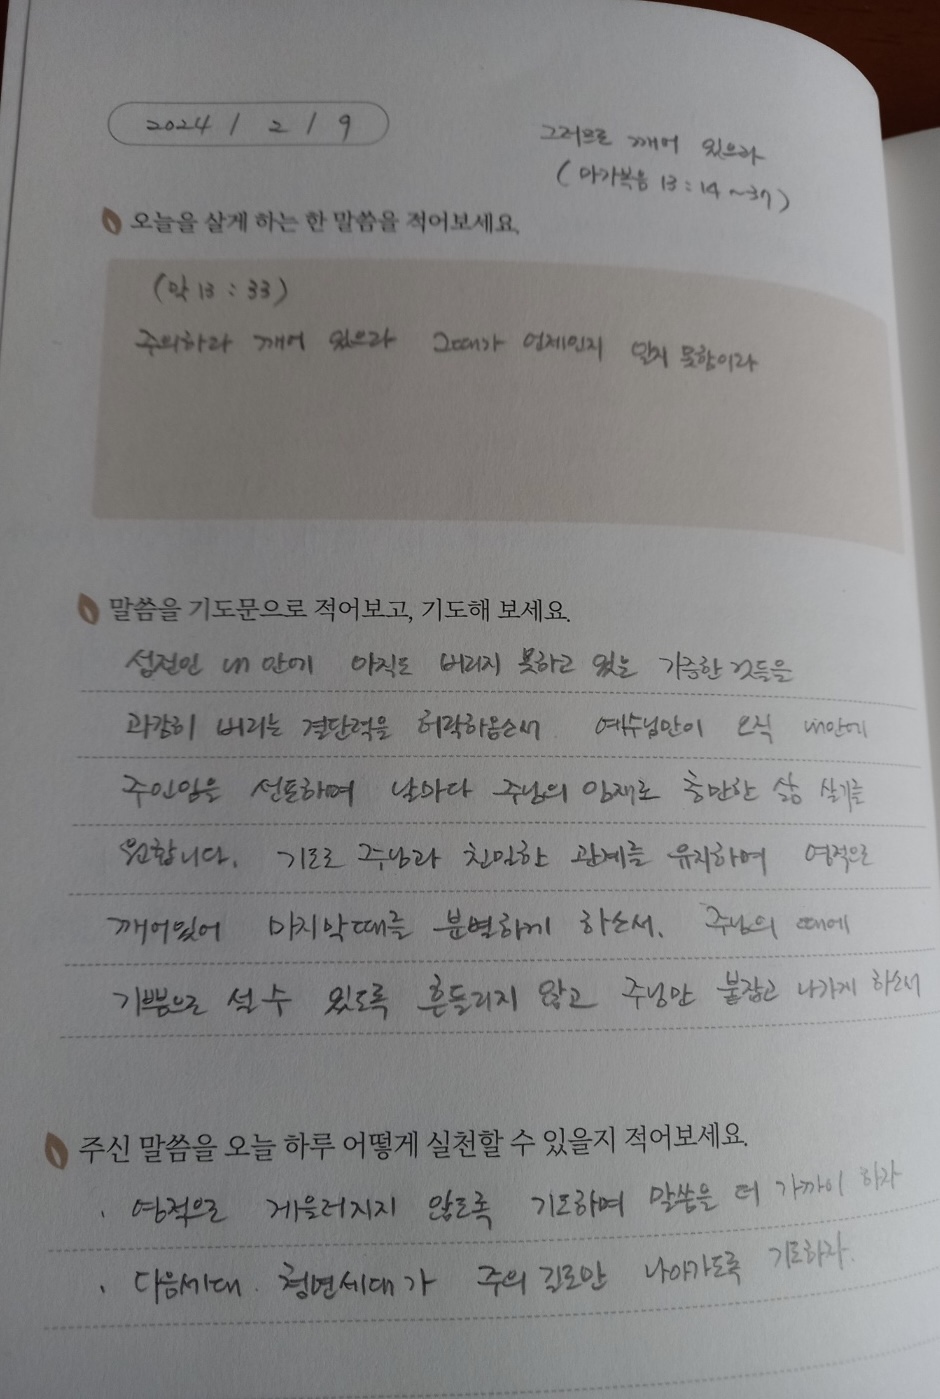 2024 / 2 / 9
그러므로 깨어 있으라
(마가복음 13 : 14 ~ 37)
오늘을 살게 하는 한 말씀을 적어보세요.
(막 13 : 33)
주의하라 깨어 있으라 그때가 언제인지 알지 못함이라
말씀을 기도문으로 적어보고, 기도해 보세요.
성전인 내 안에 아직도 버리지 못하고 있는 가증한 것들을
과감히 버리는 결단력을 허락하옵소서. 예수님만이 오직 내안에
주인임을 선포하며 날마다 주님의 임재로 충만한 삶 살기를
원합니다. 기도로 주님과 친밀한 관계를 유지하며 영적으로
깨어있어 마지막때를 분별하게 하소서. 주님의 때에
기쁨으로 설 수 있도록 흔들리지 않고 주님만 붙잡고 나가게 하소서
주신 말씀을 오늘 하루 어떻게 실천할 수 있을지 적어보세요.
. 영적으로 게을러지지 않도록 기도하며 말씀을 더 가까이 하자
. 다음세대. 청년세대가 주의 길로만 나아가도록 기도하자.